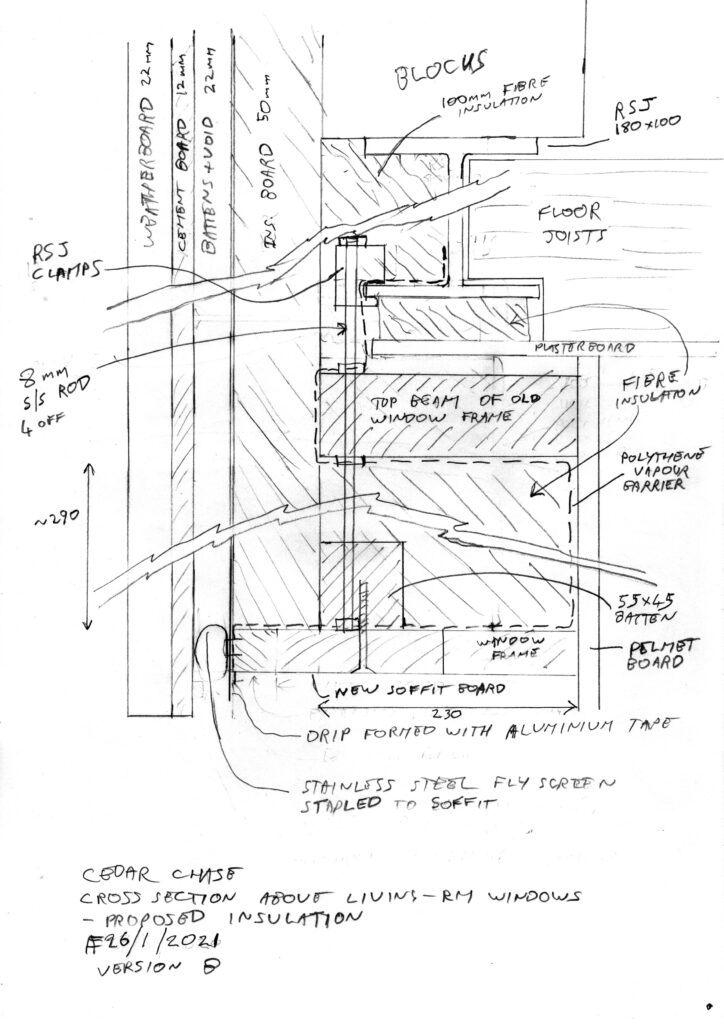 BLOCKS
100MM FIBRE
INSULATION
RSJ
180X100
WEATHERBOARD 22MM
CEMENT BOARD 12MM
BATTENS+VOID 22MM
INS. BOARD 50MM
FLOOR
JOISTS
RSJ
CLAMPS
PLASTERBOARD
8MM
S/S ROD
4 OFF
TOP BEAM OF OLD
WINDOW FRAME
FIBRE
INSULATION
POLYTHENE
VAPOUR
BARRIER
~290
55X45
BATTEN
WINDOW
FRAME
PELMET
BOARD
NEW SOFFIT BOARD
230
DRIP FORMED WITH ALUMINIUM TAPE
STAINLESS STEEL FLY SCREEN
STAPLED TO SOFFIT
CEDAR CHASE
CROSS SECTION ABOVE LIVING-RM WINDOWS
- PROPOSED INSULATION
26/1/2021
VERSION